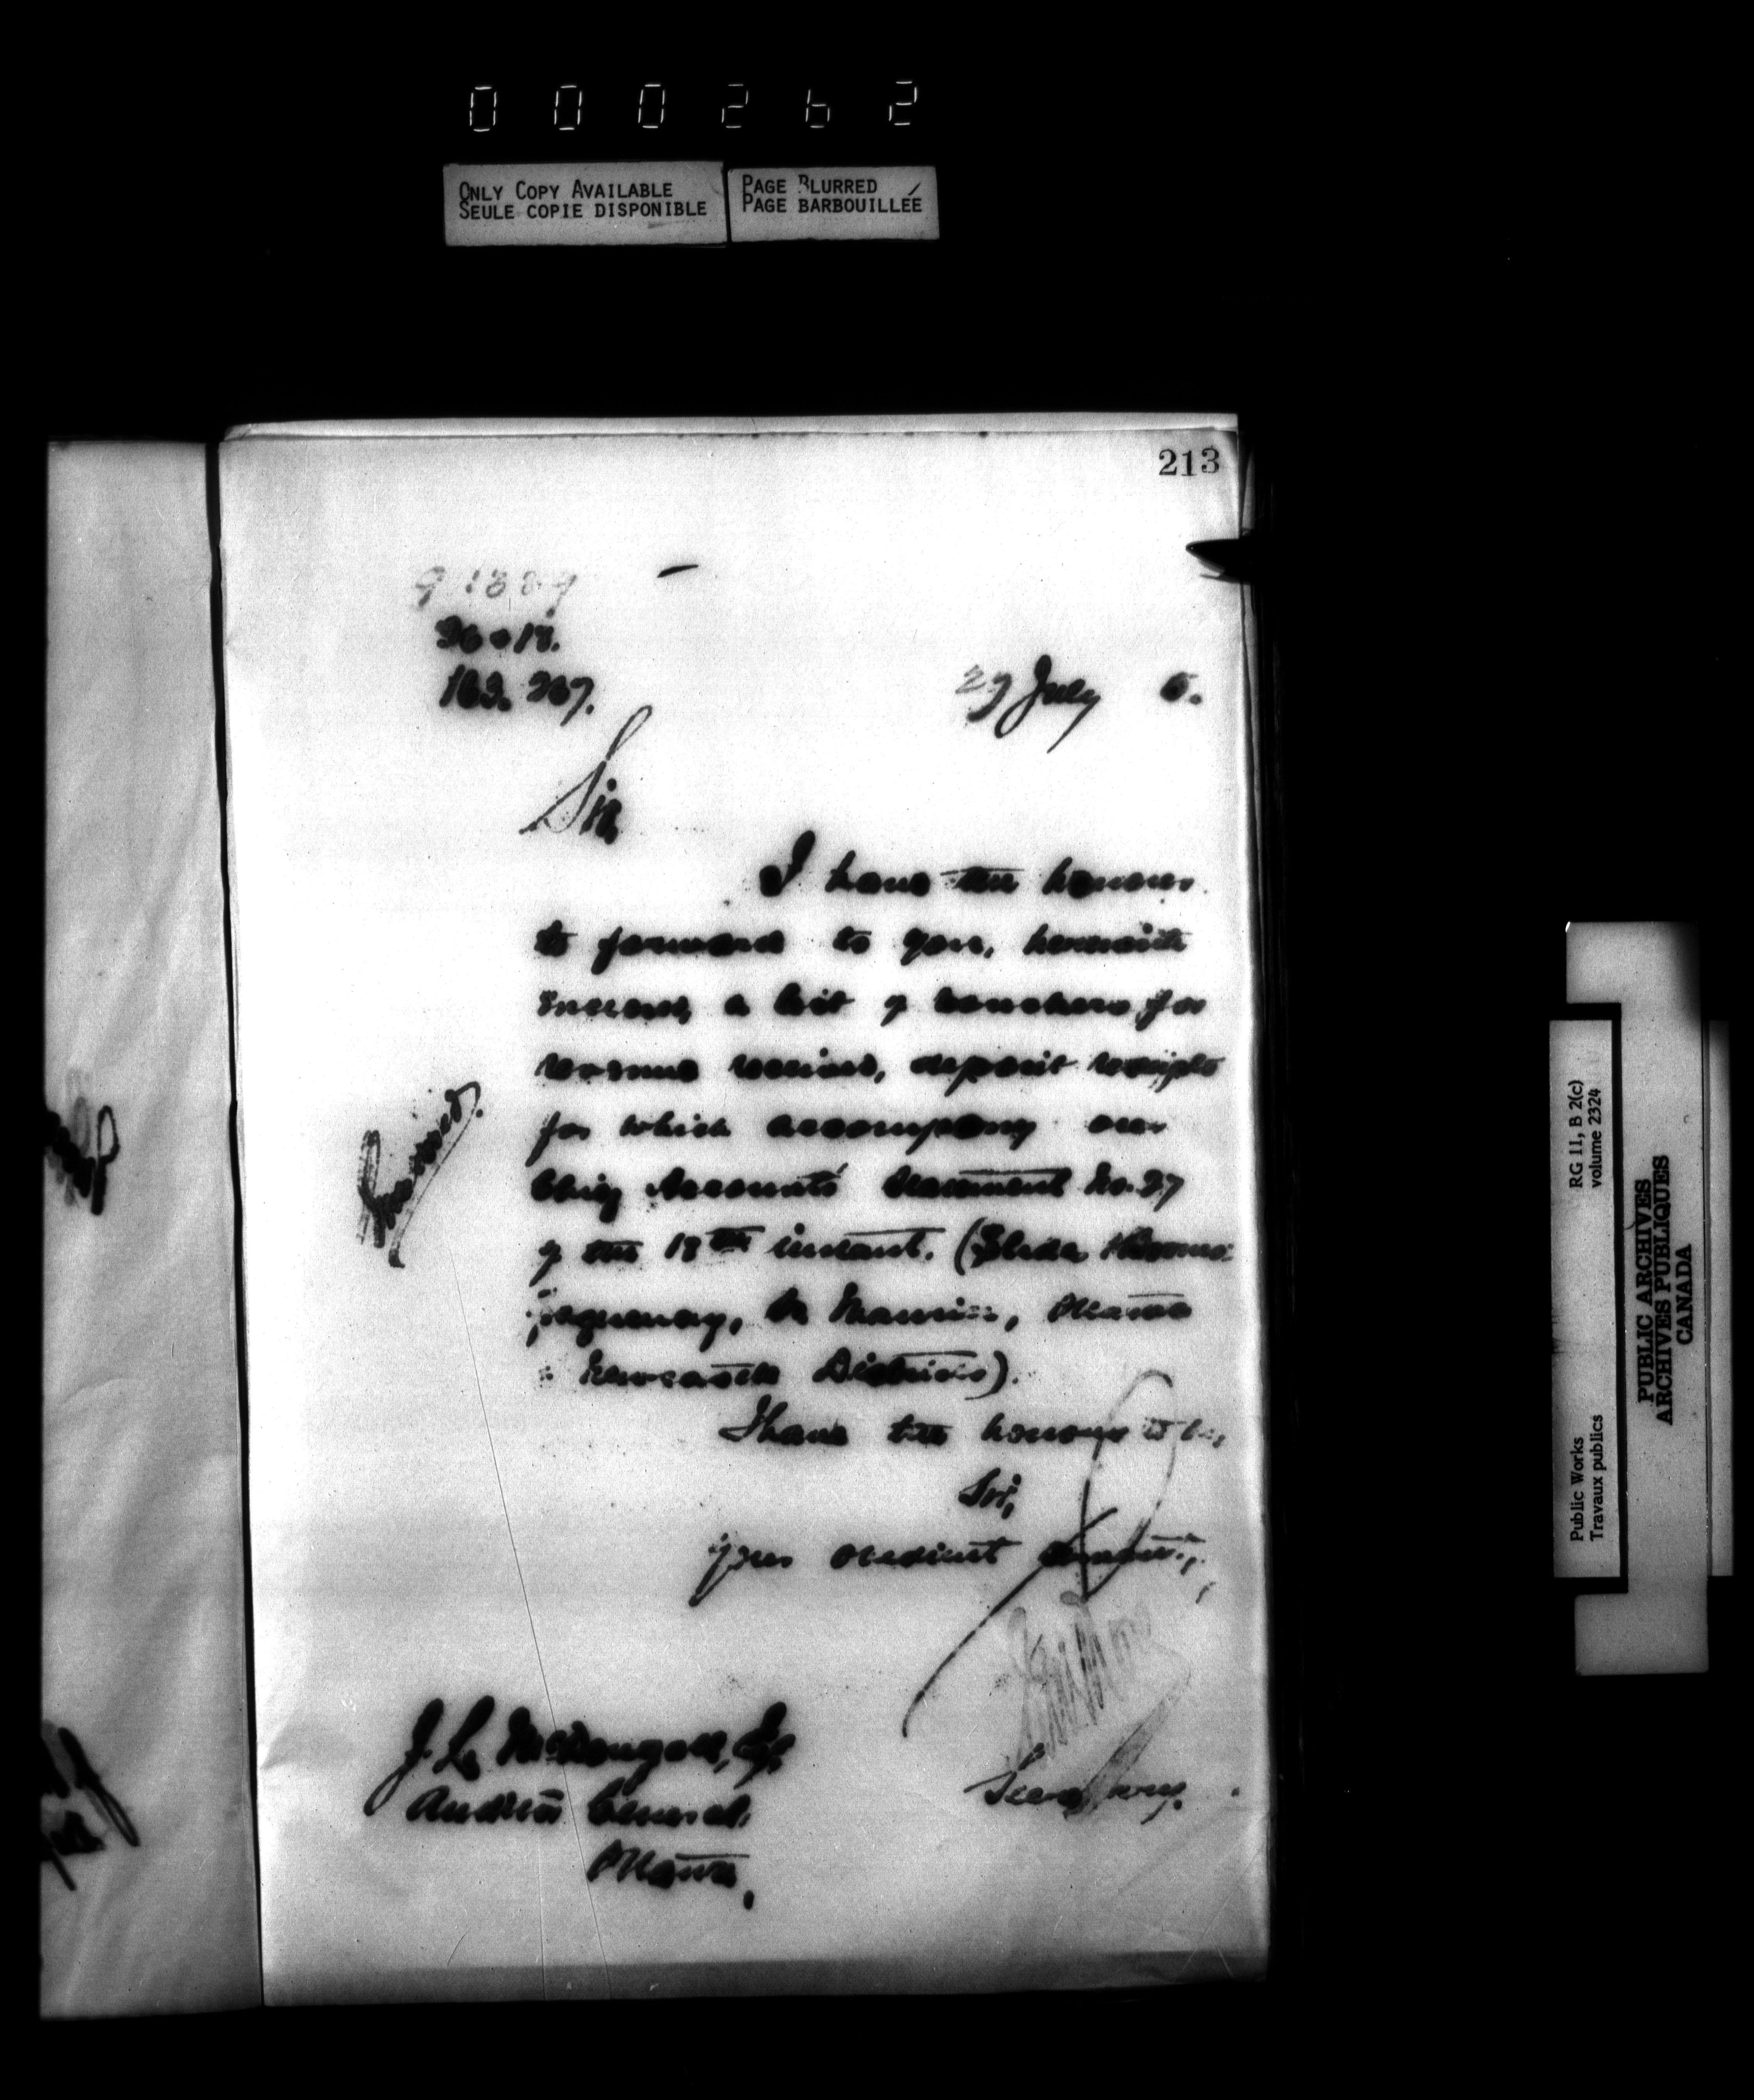 000262
ONLY COPY AVAILABLE
SEULE COPIE DISPONIBLE
PAGE BLURRED
PAGE BARBOUILLÉE
213
29 July 5.
Sir,
I have the honour
to forward to you, herewith
enclosed, a list of vouchers for
revenue received, deposit receipts
for which accompany our
Chief Accounts' Statement No. 27
of the 18th instant. (Slides & Booms
Saguenay, St Maurice, Ottawa
& Newcastle Districts).
I have the honour to be,
Sir,
Your obedient Servant,
Secretary.
J. L. McDougall, Esq.
Auditor General,
Ottawa,
Public Works
Travaux publics
RG 11, B 2(c)
volume 2324
PUBLIC ARCHIVES
ARCHIVES PUBLIQUES
CANADA